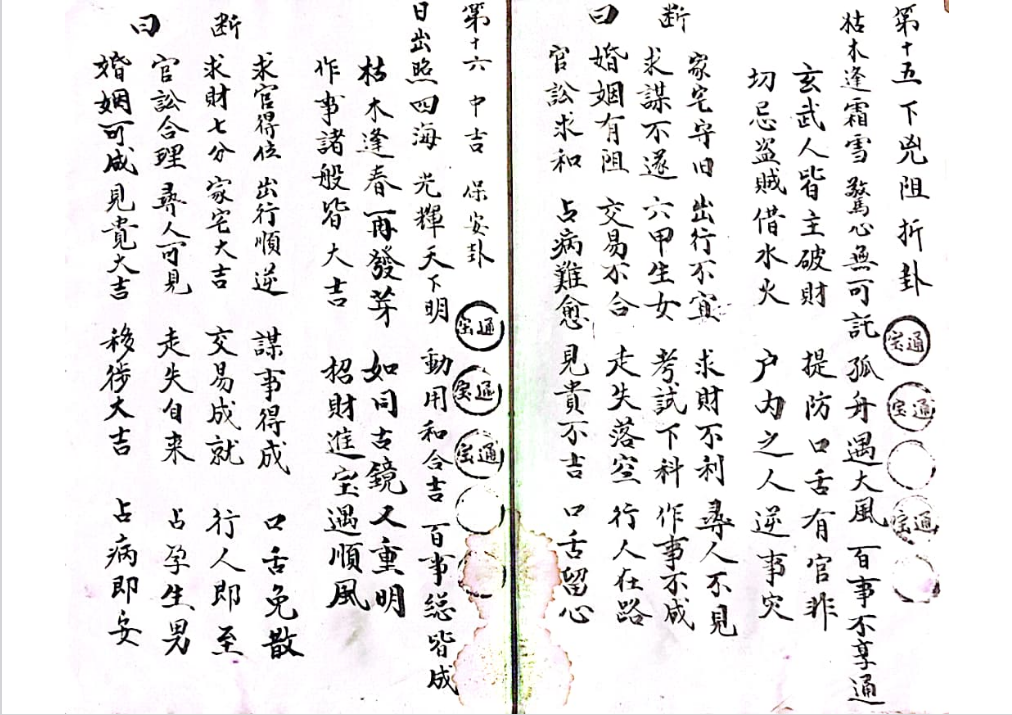 第十五 下兇 阻折卦
通宝 通宝 通宝
枯木逢霜雪 驚心無可託 孤舟遇大風 百事不享通
玄武人皆主破財 提防口舌有官非
切忌盗贼借水火 户内之人逆事灾
断曰
家宅守旧 出行不宜 求財不利 尋人不見
求謀不遂 六甲生女 考試下科 作事不成
婚姻有阻 交易不合 走失落空 行人在路
官訟求和 占病難愈 見貴不吉 口舌留心
第十六 中吉 保安卦
通宝 通宝 通宝
日出照四海 光輝天下明 動用和合吉 百事總皆成
枯木逢春再發芽 如同古鏡又重明
作事諸般皆大吉 招財進宝遇順風
断曰
求官得位 出行順逆 謀事得成 口舌免散
求財七分 家宅大吉 交易成就 行人即至
官訟合理 尋人可見 走失自来 占孕生男
婚姻可成 見貴大吉 移徙大吉 占病即安